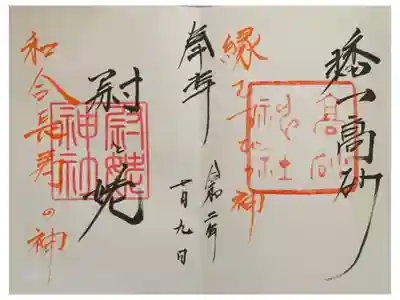 高砂
縁むすびの神
高砂神社
奉拝
令和二年
月九日
尉と姥
尉姥神社
和合長寿の神